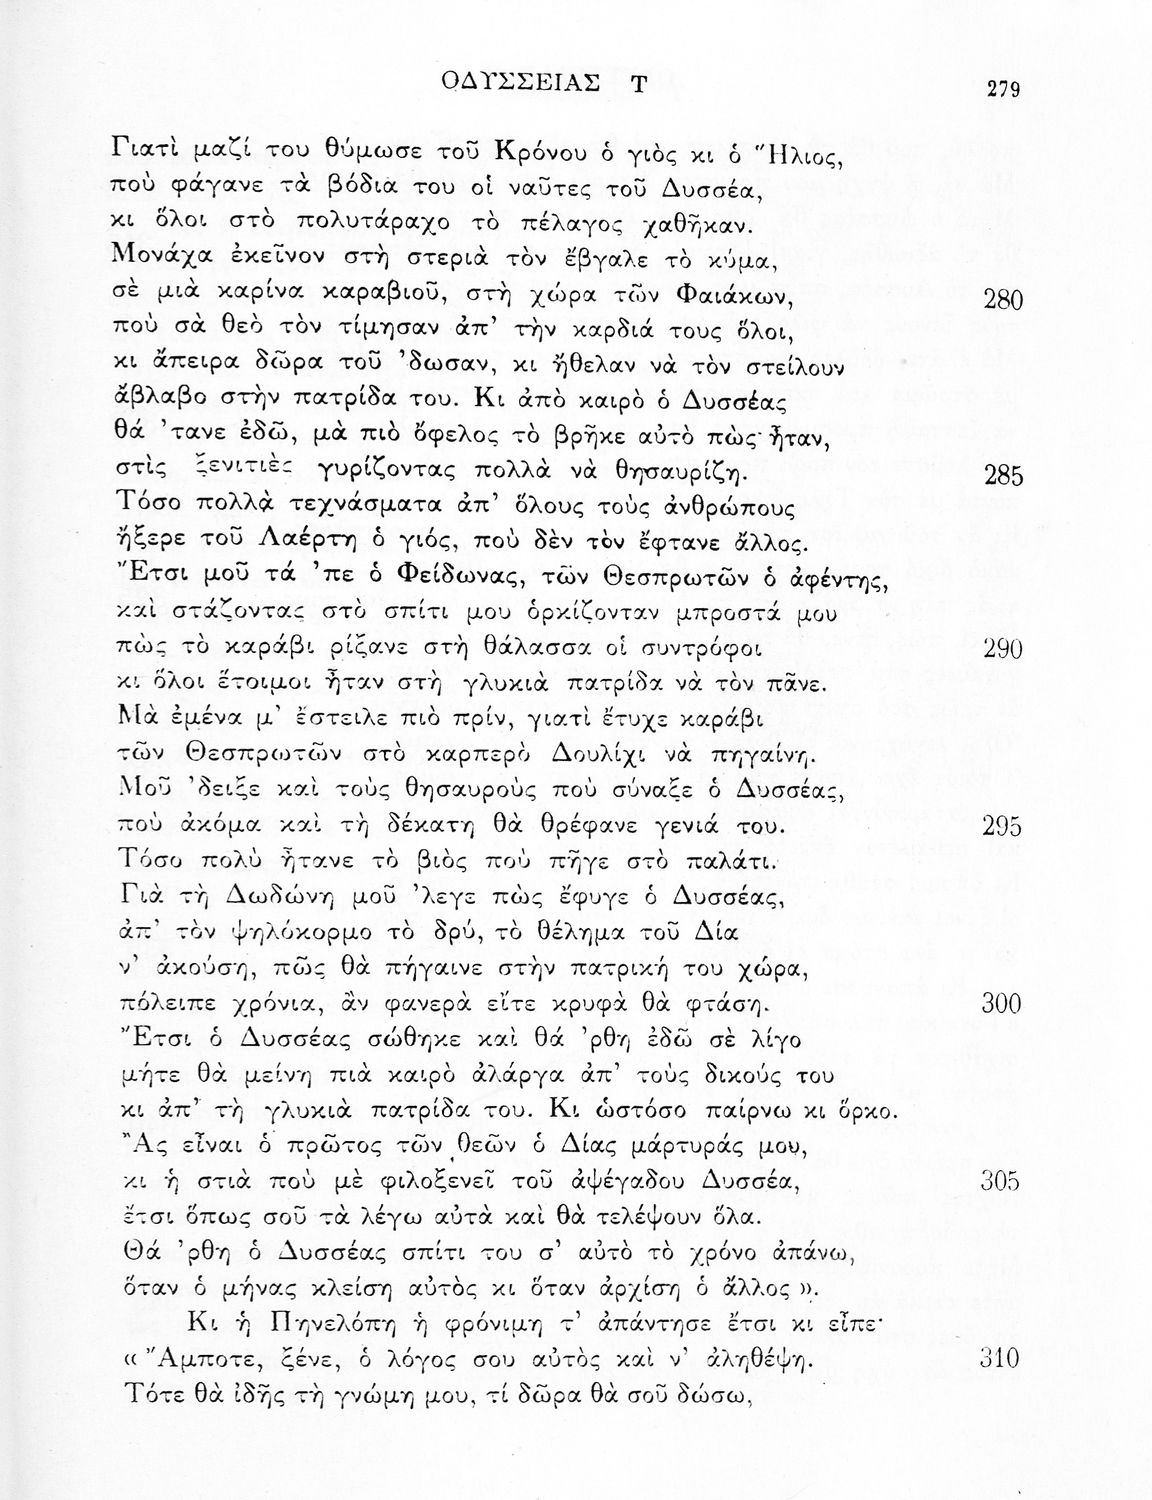 ΟΔΥΣΣΕΙΑΣ Τ 279
Γιατὶ μαζί του θύμωσε τοῦ Κρόνου ὁ γιὸς κι ὁ Ἥλιος,
ποὺ φάγανε τὰ βόδια του οἱ ναῦτες τοῦ Δυσσέα,
κι ὅλοι στὸ πολυτάραχο τὸ πέλαγος χαθῆκαν.
Μονάχα ἐκεῖνον στὴ στεριὰ τὸν ἔβγαλε τὸ κύμα,
σὲ μιὰ καρίνα καραβιοῦ, στὴ χώρα τῶν Φαιάκων, 280
ποὺ σὰ θεὸ τὸν τίμησαν ἀπ’ τὴν καρδιά τους ὅλοι,
κι ἄπειρα δῶρα τοῦ ’δωσαν, κι ἤθελαν νὰ τὸν στείλουν
ἄβλαβο στὴν πατρίδα του. Κι ἀπὸ καιρὸ ὁ Δυσσέας
θά ’τανε ἐδῶ, μὰ πιὸ ὄφελος τὸ βρῆκε αὐτὸ πὼς ἦταν,
στὶς ξενιτιὲς γυρίζοντας πολλὰ νὰ θησαυρίζῃ. 285
Τόσο πολλὰ τεχνάσματα ἀπ’ ὅλους τοὺς ἀνθρώπους
ἤξερε τοῦ Λαέρτη ὁ γιός, ποὺ δὲν τὸν ἔφτανε ἄλλος.
Ἔτσι μοῦ τά ’πε ὁ Φείδωνας, τῶν Θεσπρωτῶν ὁ ἀφέντης,
καὶ στάζοντας στὸ σπίτι μου ὁρκίζονταν μπροστά μου
πὼς τὸ καράβι ρίξανε στὴ θάλασσα οἱ συντρόφοι 290
κι ὅλοι ἕτοιμοι ἦταν στὴ γλυκιὰ πατρίδα νὰ τὸν πᾶνε.
Μὰ ἐμένα μ’ ἔστειλε πιὸ πρίν, γιατὶ ἔτυχε καράβι
τῶν Θεσπρωτῶν στὸ καρπερὸ Δουλίχι νὰ πηγαίνῃ.
Μοῦ ’δειξε καὶ τοὺς θησαυροὺς ποὺ σύναξε ὁ Δυσσέας,
ποὺ ἀκόμα καὶ τὴ δέκατη θὰ θρέφανε γενιά του. 295
Τόσο πολὺ ἤτανε τὸ βιὸς ποὺ πῆγε στὸ παλάτι.
Γιὰ τὴ Δωδώνη μοῦ ’λεγε πὼς ἔφυγε ὁ Δυσσέας,
ἀπ’ τὸν ψηλόκορμο τὸ δρύ, τὸ θέλημα τοῦ Δία
ν’ ἀκούσῃ, πῶς θὰ πήγαινε στὴν πατρική του χώρα,
πόλειπε χρόνια, ἂν φανερὰ εἴτε κρυφὰ θὰ φτάσῃ. 300
Ἔτσι ὁ Δυσσέας σώθηκε καὶ θά ’ρθη ἐδῶ σὲ λίγο
μήτε θὰ μείνῃ πιὰ καιρὸ ἀλάργα ἀπ’ τοὺς δικούς του
κι ἀπ’ τὴ γλυκιὰ πατρίδα του. Κι ὡστόσο παίρνω κι ὅρκο.
Ἂς εἶναι ὁ πρῶτος τῶν θεῶν ὁ Δίας μάρτυράς μου,
κι ἡ στιὰ ποὺ μὲ φιλοξενεῖ τοῦ ἀψέγαδου Δυσσέα, 305
ἔτσι ὅπως σοῦ τὰ λέγω αὐτὰ καὶ θὰ τελέψουν ὅλα.
Θά ’ρθη ὁ Δυσσέας σπίτι του σ’ αὐτὸ τὸ χρόνο ἀπάνω,
ὅταν ὁ μήνας κλείσῃ αὐτὸς κι ὅταν ἀρχίσῃ ὁ ἄλλος ».
Κι ἡ Πηνελόπη ἡ φρόνιμη τ’ ἀπάντησε ἔτσι κι εἶπε·
« Ἄμποτε, ξένε, ὁ λόγος σου αὐτὸς καὶ ν’ ἀληθέψῃ. 310
Τότε θὰ ἰδῇς τὴ γνώμη μου, τί δῶρα θὰ σοῦ δώσω,